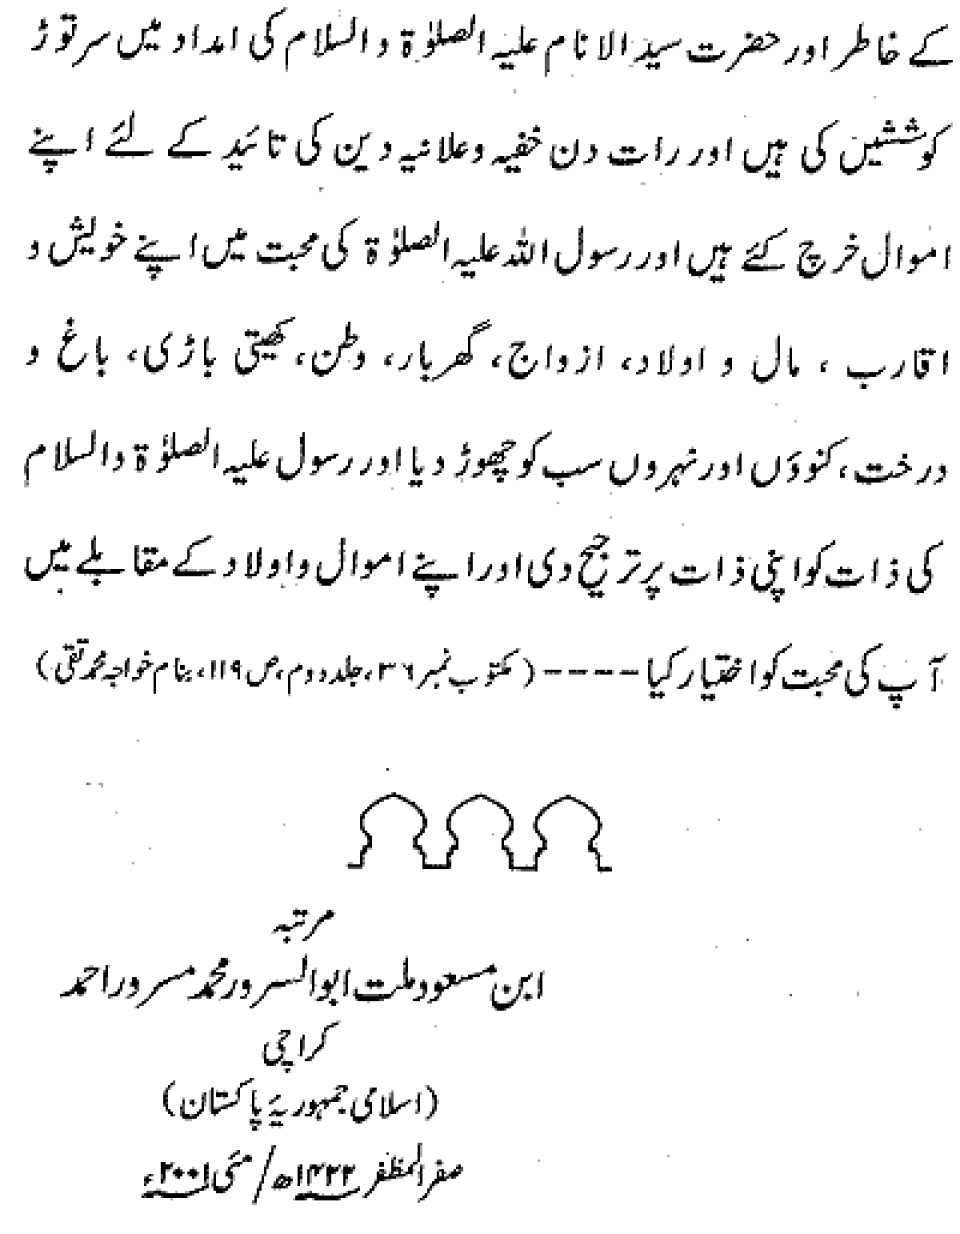 کے خاطر اور حضرت سید الانام علیہ الصلوٰۃ و السلام کی امداد میں سر توڑ
کوششیں کی ہیں اور رات دن خفیہ و علانیہ دین کی تائید کے لئے اپنے
اموال خرچ کئے ہیں اور رسول اللہ علیہ الصلوٰۃ کی محبت میں اپنے خویش و
اقارب ، مال و اولاد، ازواج، گھر بار، وطن، کھیتی باڑی، باغ و
درخت، کنوؤں اور نہروں سب کو چھوڑ دیا اور رسول علیہ الصلوٰۃ والسلام
کی ذات کو اپنی ذات پر ترجیح دی اور اپنے اموال و اولاد کے مقابلے میں
آپ کی محبت کو اختیار کیا---- (مکتوب نمبر ۳۶، جلد دوم، ص ۱۱۹، بنام خواجہ محمد تقی)
مرتبہ
ابن مسعود ملت ابوالسرور محمد مسرور احمد
کراچی
(اسلامی جمہوریۂ پاکستان)
صفر المظفر ۱۴۲۲ھ/ مئی ۲۰۰۱ء